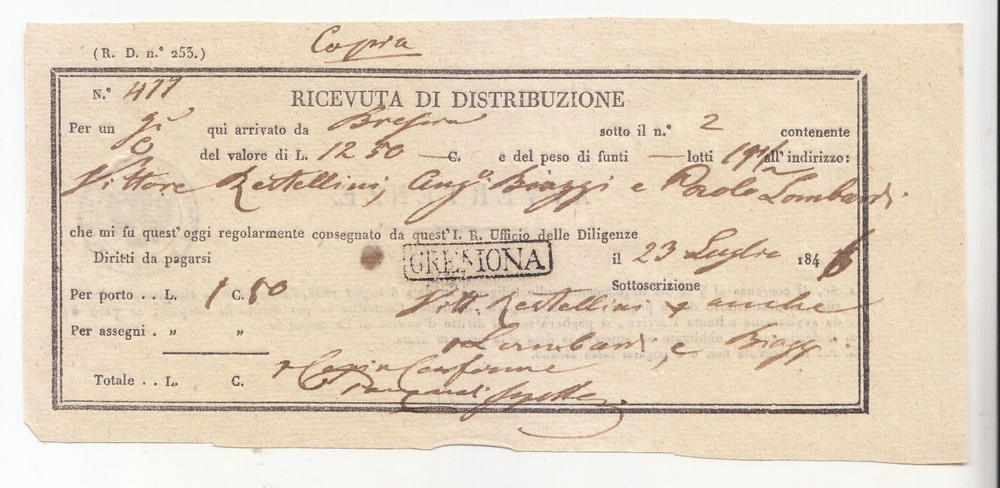 Copia
(R. D. n.° 253.)
N.° 477
RICEVUTA DI DISTRIBUZIONE
Per un qui arrivato da Brescia sotto il n.° 2 contenente
del valore di L. 12 50 C. e del peso di funti — lotti 19 1/2 all' indirizzo:
Vittore Restellini, Ang.° Biaggi e Paolo Lombardi
che mi fu quest' oggi regolarmente consegnato da quest' I. R. Ufficio delle Diligenze
CREMONA
il 23 Luglio 1846
Diritti da pagarsi
Sottoscrizione
Per porto . . L. 1 C. 50
Vitt. Restellini e anche
Per assegni . „ „
Lombardi e Biaggi
Totale . . L. C.
Copia Conforme